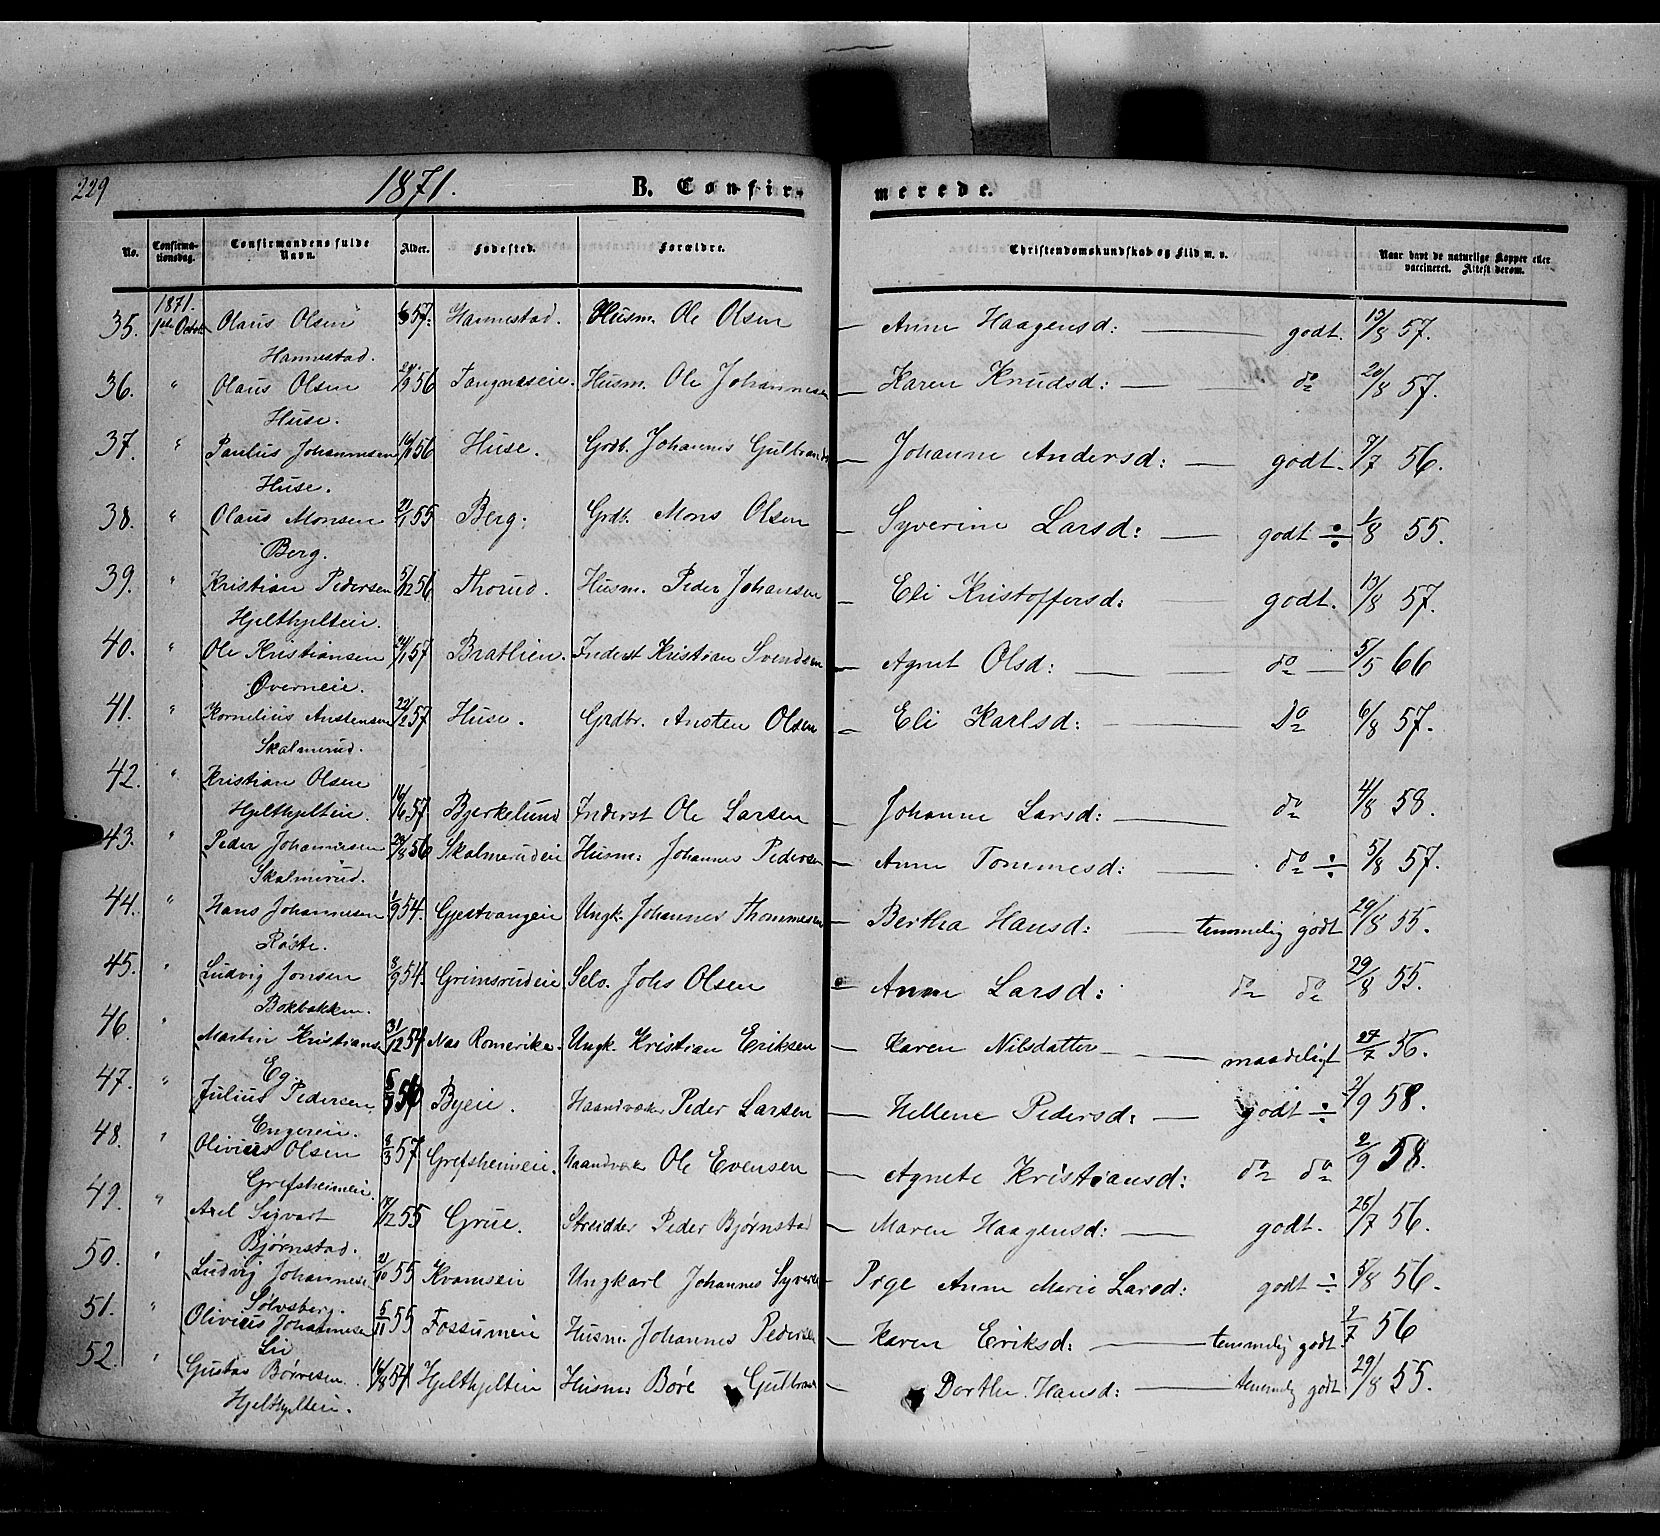 229
1871.
B. Confirmerede.
No. Confirmationsdag. Confirmandens fulde Navn. Alder. Fødested. Forældre. Christendomskundskab og Flid m. v. Naar havt de naturlige Kopper eller vaccineret. Attest derom.
1871.
35. 1ste Octob Olaus Olsen 57. Hannestad. Husm. Ole Olsen — Anne Haagensd: — godt. 13/8 57.
Hannestad.
36. " Olaus Olsen 29/9 56 Tangnæseie. Husm. Ole Johannesen — Karen Knudsd: — do 20/8 57.
Huse.
37. " Paulus Johannesen 56 Huse. Grdb. Johannes Gulbrands — Johanne Andersd: — godt. 7/7 56.
Huse.
38. " Olaus Monsen 55 Berg. Grdb. Mons Olsen — Syverine Larsd: — godt ÷ 1/8 55.
Berg.
39. " Kristian Pedersen 5/12 56 Thorud. Husm. Peder Johansen — Eli Kristoffersd: — godt. 13/8 57.
Hjelthjelteie.
40. " Ole Kristiansen 24/1 57 Bratlien. Inderst Kristian Svendsen — Agnet Olsd: — do — 5/5 66
Øverneie.
41. " Kornelius Anstensen 22/2 57 Huse. Grdbr. Ansten Olsen — Eli Karlsd: — Do 6/8 57.
Skalmerud.
42. " Kristian Olsen
Hjelthjelteie. 16/6 57 Bjerkelund Inderst Ole Larsen — Johanne Larsd: — do 4/8 58.
43. " Peder Johannesen 29/8 56 Skalmerudeie Husm: Johannes Pedersen — Anne Tommesd: — do ÷ 5/8 57.
Skalmerud.
44. " Hans Johannesen 1/9 54. Gjestvangeie Ungk. Johannes Thommesen — Bertha Hansd: — temmelig godt 29/8 55.
Røste.
45. " Ludvig Jonsen 8/9 54. Grimsrudeie Selv. Johs Olsen — Anne Larsd: do do 29/8 55.
Bokbakken.
46. " Martin Kristians 31/12 54 Nas Romerike. Ungk. Kristian Eriksen — Karen Nilsdatter — maadeligt 27/7 56.
Eg.
47. " Julius Pedersen 56 Byeie. Haandværk Peder Larsen — Hellene Pedersd: — godt ÷ 2/9 58.
Engereie.
48. " Olivius Olsen 8/3 57 Grefsheimeie. Haandværk Ole Evensen — Agnete Kristiansd: do do 2/9 58.
Grefsheimeie.
49. " Axel Sigvart 18/12 55 Grue. Skredder Peder Bjørnstad — Maren Haagensd: — godt. 26/7 56.
Bjørnstad.
50. " Ludvig Johannese 2/10 55 Kvamseie Ungkarl Johannes Syvers — Pige Anne Marie Larsd: godt ÷ 5/8 56.
Sølvsberg.
51. " Olivius Johannesen 5/11 55 Fossumeie Husm. Johannes Pedersen — Karen Eriksd: — temmelig godt. 2/7 56
Lie
52. " Gustav Børresen. 14/8 54 Hjelthjelteie Husm: Børe Gulbrand — Dorthe Hansd: — temmelig godt 29/8 55.
Hjelthjelteie.